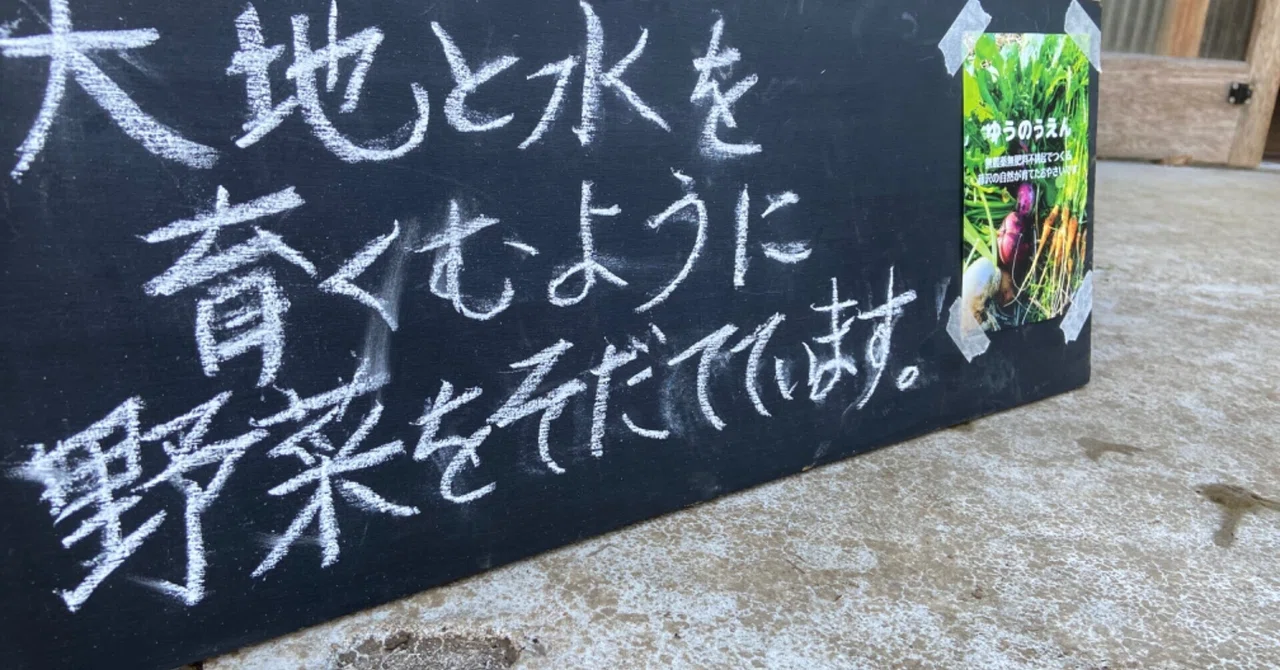 大地と水を
育くむように
野菜をそだてています。
ゆうのうえん
無農薬無肥料不耕起でつくる
藤沢の自然が育てたおやさいです